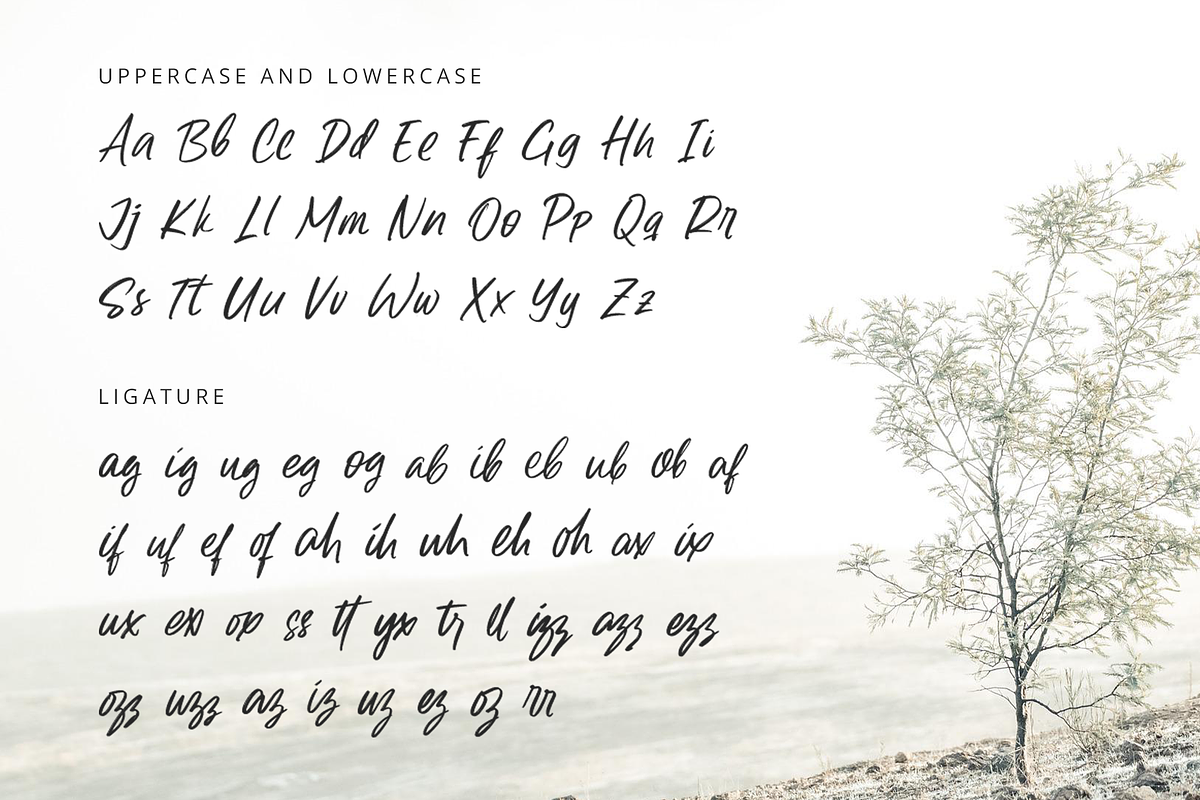 UPPERCASE AND LOWERCASE
Aa Bb Cc Dd Ee Ff Gg Hh Ii
Jj Kk Ll Mm Nn Oo Pp Qq Rr
Ss Tt Uu Vv Ww Xx Yy Zz
LIGATURE
ag ig ug eg og ab ib eb ub ob af
if uf ef of ah ih uh eh oh ax ix
ux ex ox ss tt yx tr ll izz azz ezz
ozz uzz az iz uz ez oz rr